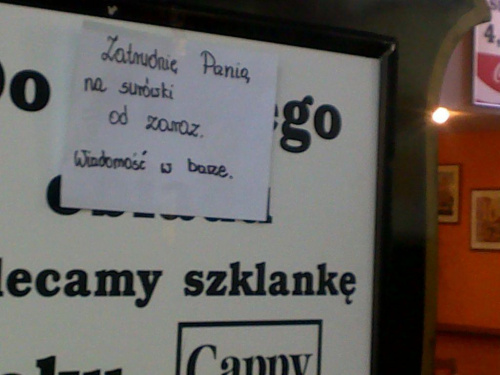 Zatrudnię Panią
na surówki
od zaraz.
Wiadomość w barze.
Do ego
lecamy szklankę
Cappy
4,